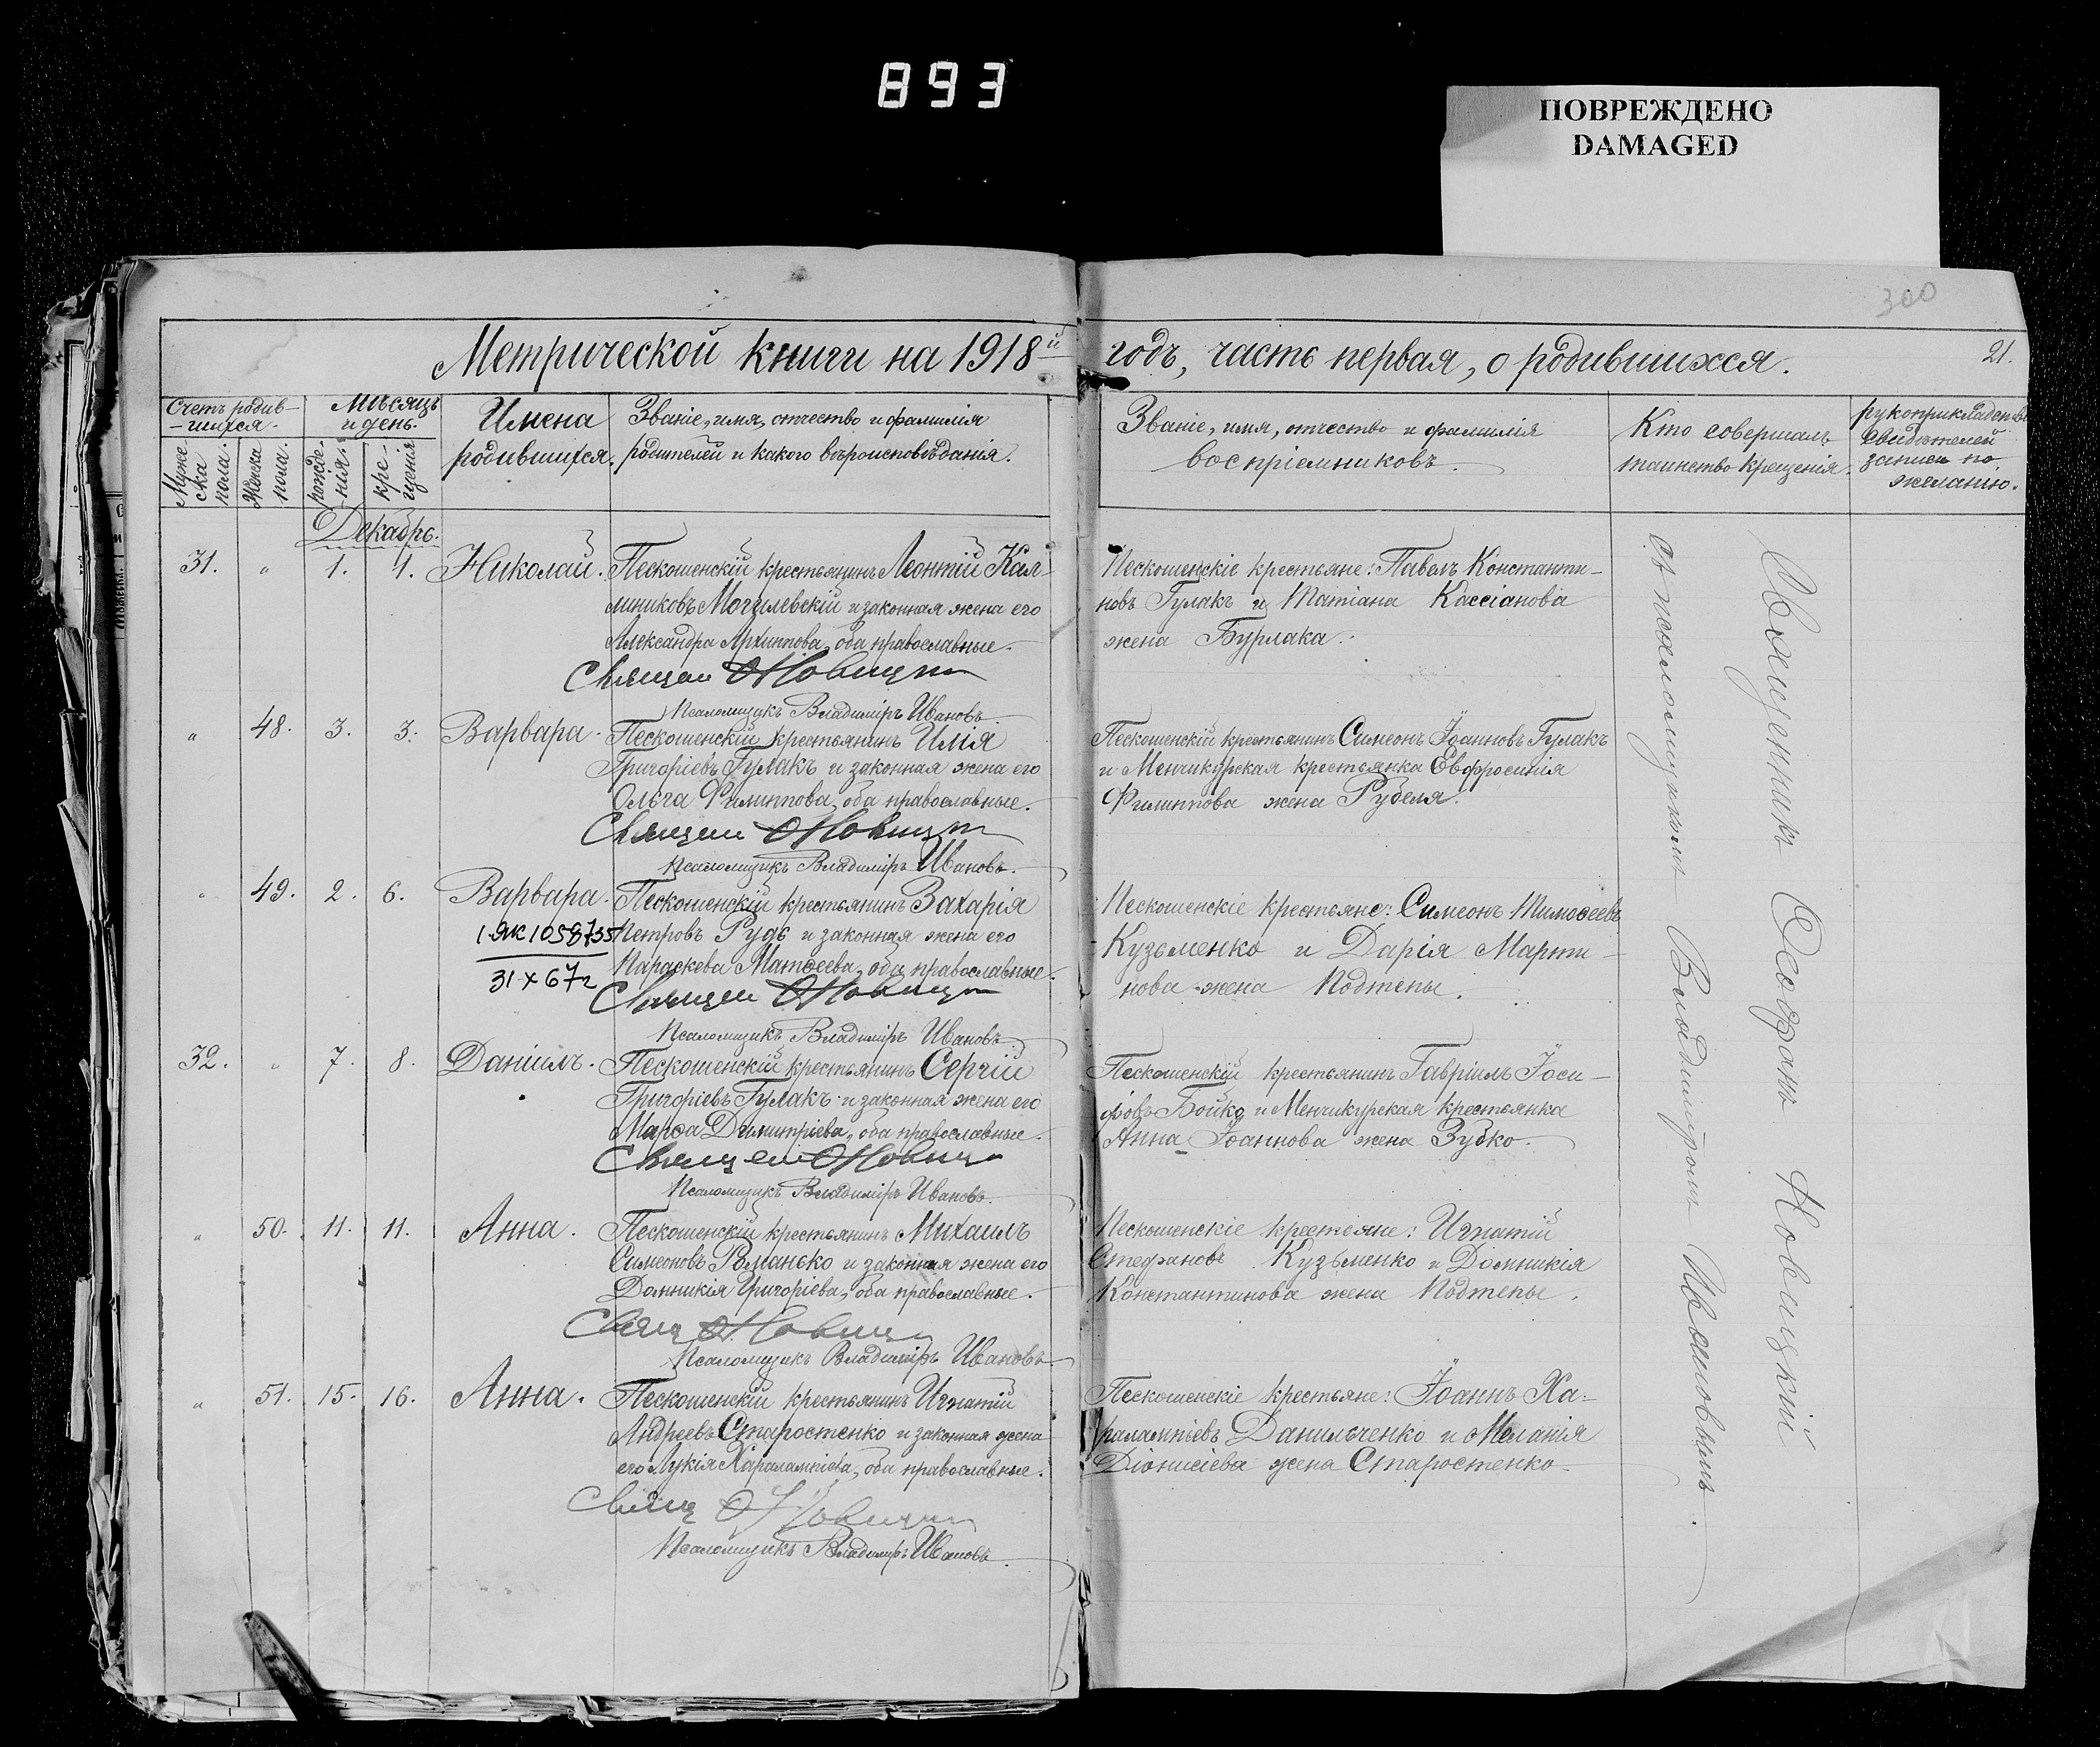 893
ПОВРЕЖДЕНО
DAMAGED
300
Метрической книги на 1918й годъ, часть первая, о родившихся.
21.
Счетъ родив-
-шихся.
Муже-
ска
пола.
Женска
пола.
Мѣсяцъ
и день.
рожде-
нія.
кре-
щенія
Имена
родившихся.
Званіе, имя, отчество и фамилія
родителей и какого вѣроисповѣданія.
Званіе, имя, отчество и фамилія
воспріемниковъ.
Кто совершалъ
таинство крещенія.
рукоприкладство
свидѣтелей
записи по
желанію.
Декабрь.
31. " 1. 1. Николай. Пескошенскій крестьянинъ Леонтій Кал-
линиковъ Могилевскій и законная жена его
Александра Архиппова, оба православные.
Священ Новицкій
Псаломщикъ Владиміръ Ивановъ.
Пескошенскіе крестьяне: Павелъ Константи-
новъ Гулакъ и Татіана Кассіанова
жена Бурлака.
" 48. 3. 3. Варвара. Пескошенскій крестьянинъ Илія
Григоріевъ Гулакъ и законная жена его
Ольга Филиппова, оба православные.
Священ Новицкій
Псаломщикъ Владиміръ Ивановъ.
Пескошенскій крестьянинъ Симеонъ Іоанновъ Гулакъ
и Менчикурская крестьянка Евфросинія
Филиппова жена Рубеля.
" 49. 2. 6. Варвара. Пескошенскій крестьянинъ Захарія
Петровъ Рудь и законная жена его
Параскева Матѳеева, оба православные.
1 ЯК 1058735
31 X 67г
Священ Новицкій
Псаломщикъ Владиміръ Ивановъ.
Пескошенскіе крестьяне: Симеонъ Тимоѳеевъ
Кузьменко и Дарія Марти-
нова жена Подтепы.
32. " 7. 8. Даніилъ. Пескошенскій крестьянинъ Сергій
Григоріевъ Гулакъ и законная жена его
Марѳа Димитріева, оба православные.
Священ Новицкій
Псаломщикъ Владиміръ Ивановъ.
Пескошенскій крестьянинъ Гавріилъ Іоси-
фовъ Бойко и Менчикурская крестьянка
Анна Іоаннова жена Зубко.
" 50. 11. 11. Анна. Пескошенскій крестьянинъ Михаилъ
Симеоновъ Романько и законная жена его
Домникія Григоріева, оба православные.
Свящ Новицкій
Псаломщикъ Владиміръ Ивановъ.
Пескошенскіе крестьяне: Игнатій
Стефановъ Кузьменко и Домникія
Константинова жена Подтепы.
" 51. 15. 16. Анна. Пескошенскій крестьянинъ Игнатій
Андреевъ Старостенко и законная жена
его Лукія Харалампіева, оба православные.
Свящ Новицкій
Псаломщикъ Владиміръ Ивановъ.
Пескошенскіе крестьяне: Іоаннъ Ха-
ралампіевъ Данильченко и Меланія
Діонисіева жена Старостенко.
Священникъ Новицкій
съ псаломщикомъ Владиміромъ Ивановымъ.